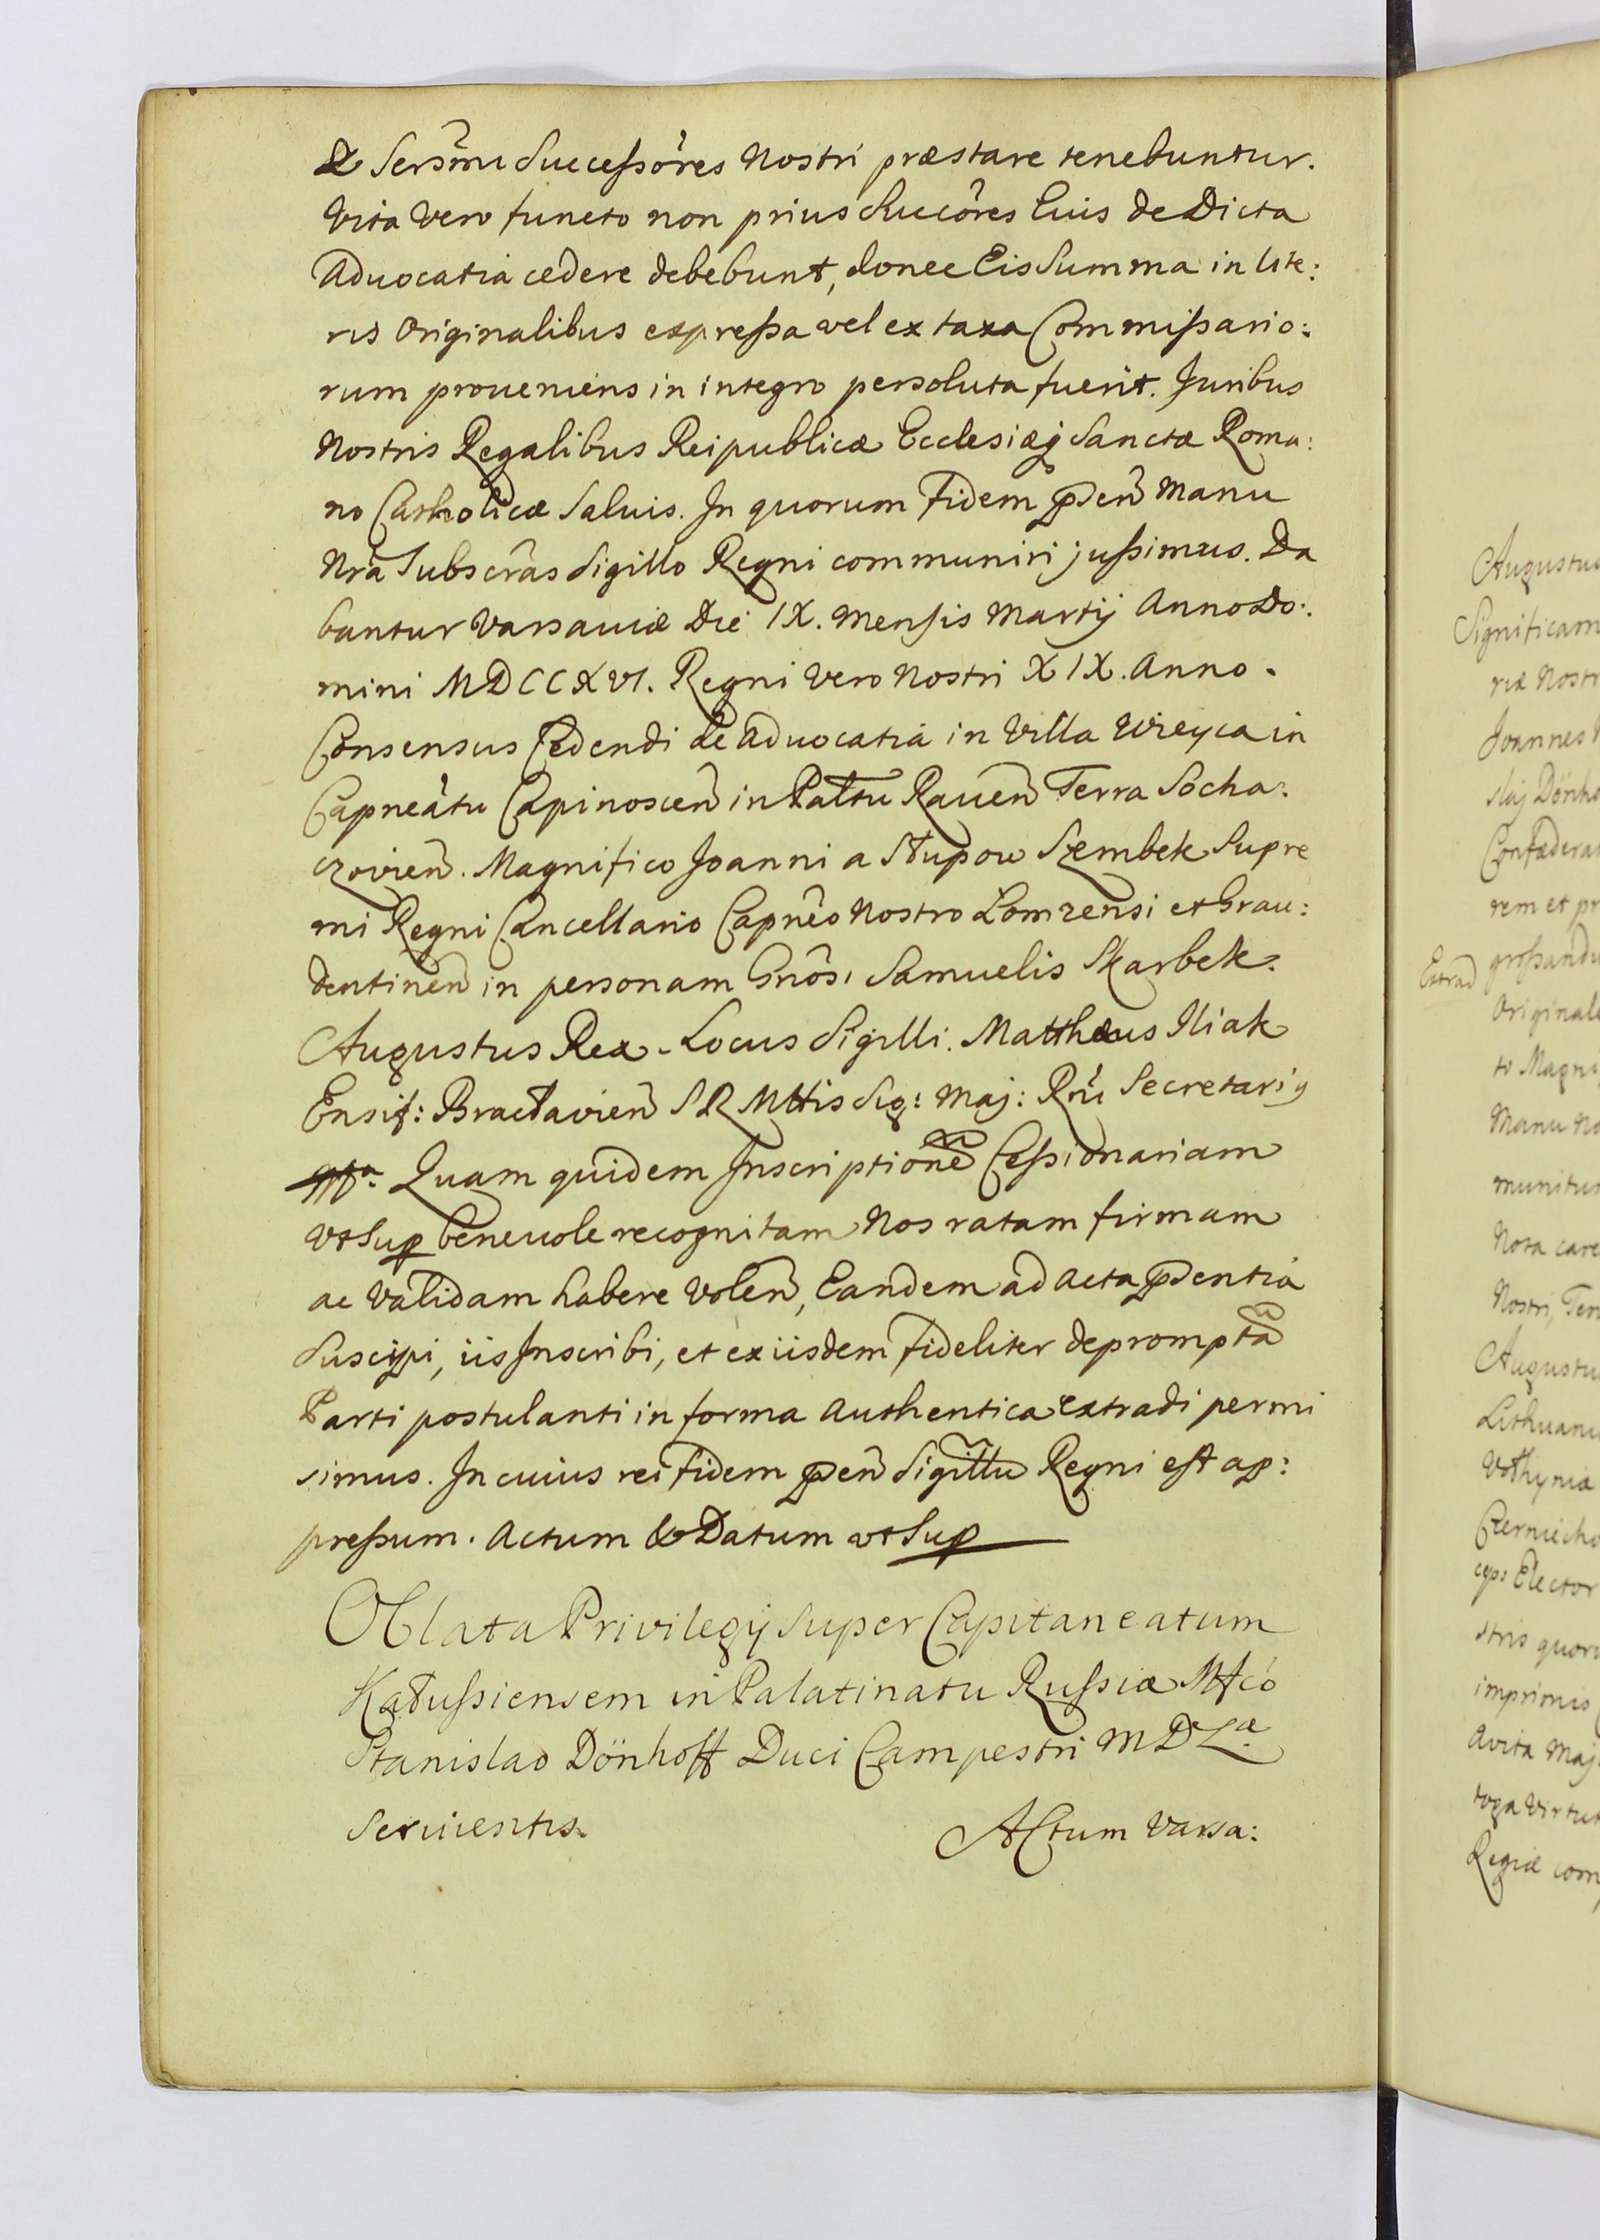 & Sersm̃i Successôres Nostri præstare tenebuntur.
Vita Vero functo non prius Succôres Euis de Dicta
Aduocatia cedere debebunt, donec Eis Summa in lite:
ris Originalibus expressa vel ex taxa Commissario:
rum proueniens in integro persoluta fuerit. Juribus
Nostris Regalibus Reipublicæ Ecclesiæq́ Sanctæ Roma:
no Catholicæ Saluis. In quorum Fidem p̃sen̄ Manu
Nrã Subscrãs Sigillo Regni communiri jussimus. Da
bantur Varsauiæ Die IX. Mensis Martij Anno Do:
mini MDCCXVI. Regni Vero Nostri XIX. Anno.
Consensus Cedendi de Aduocatia in Villa Wieyca in
Capneâtu Capinoscen̄ in Paltũ Rauen̄ Terra Socha:
czovien̄. Magnifico Joanni a Słupow Szembek Supre
mi Regni Cancellario Capnẽo Nostro Lomzensi et Grau:
dentinen̄ in personam Gnôsi Samuelis Skarbek.
Augustus Rex. Locus Sigilli. Matthæus Iliak
Ensif: Bracłavien̄ S R Mttis Sig: Maj: Rñi Secretariꝰ
mpa. Quam quidem Inscriptionē Cessionariam
Vt Sup beneuole recognitam Nos ratam firmam
ac Validam habere Volen̄, Eandem ad Acta p̃sentia
Suscipi, iis Inscribi, et ex iisdem Fideliter depromptã
Parti postulanti in forma Authentica extradi permi
simus. In cuius rei Fidem p̃sen̄ Sigillũ Regni est ap:
pressum. Actum & Datum vt Sup
Oblata Privilegij Super Capitaneatum
Kałussiensem in Palatinatu Russiæ Mfco
Stanislao Dönhoff Duci Campestri M D Læ
Seruientis.
Actum Varsa:
Augustus
Significam
riæ Nostr
Joannes
slaj Dönho
Confædera
rem et pr
Extrad̃ grossandu
Original
to Magni
Manu No
munitu
Nota care
Nostri, Ten
Augustu
Lithuani
Vołhyniæ
Czerniecho
ceps Elector
stris quor
imprimis
Avita Maj
toga Virtut
Regiæ com